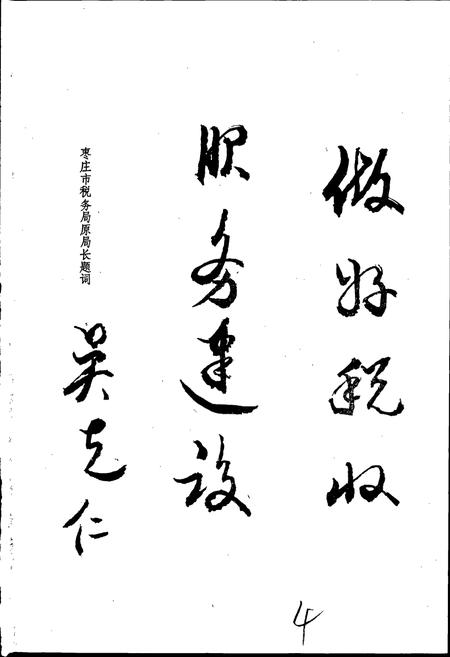 做好税收
服务建设
枣庄市税务局原局长题词
吴克仁
4